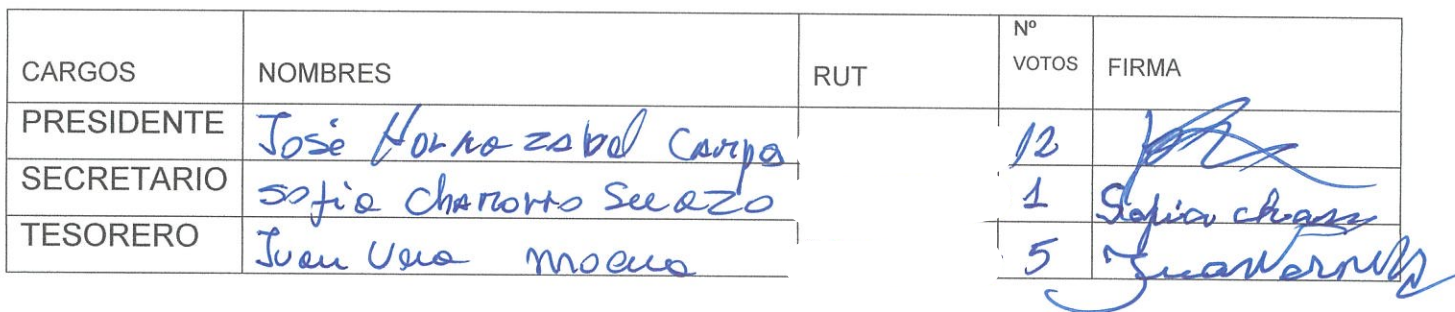 CARGOS NOMBRES RUT Nº VOTOS FIRMA
PRESIDENTE José Hormazabal Campos 12
SECRETARIO Sofia Chamorro Suazo 1 Sofia
TESORERO Juan Vera Moena 5 Juan Vera